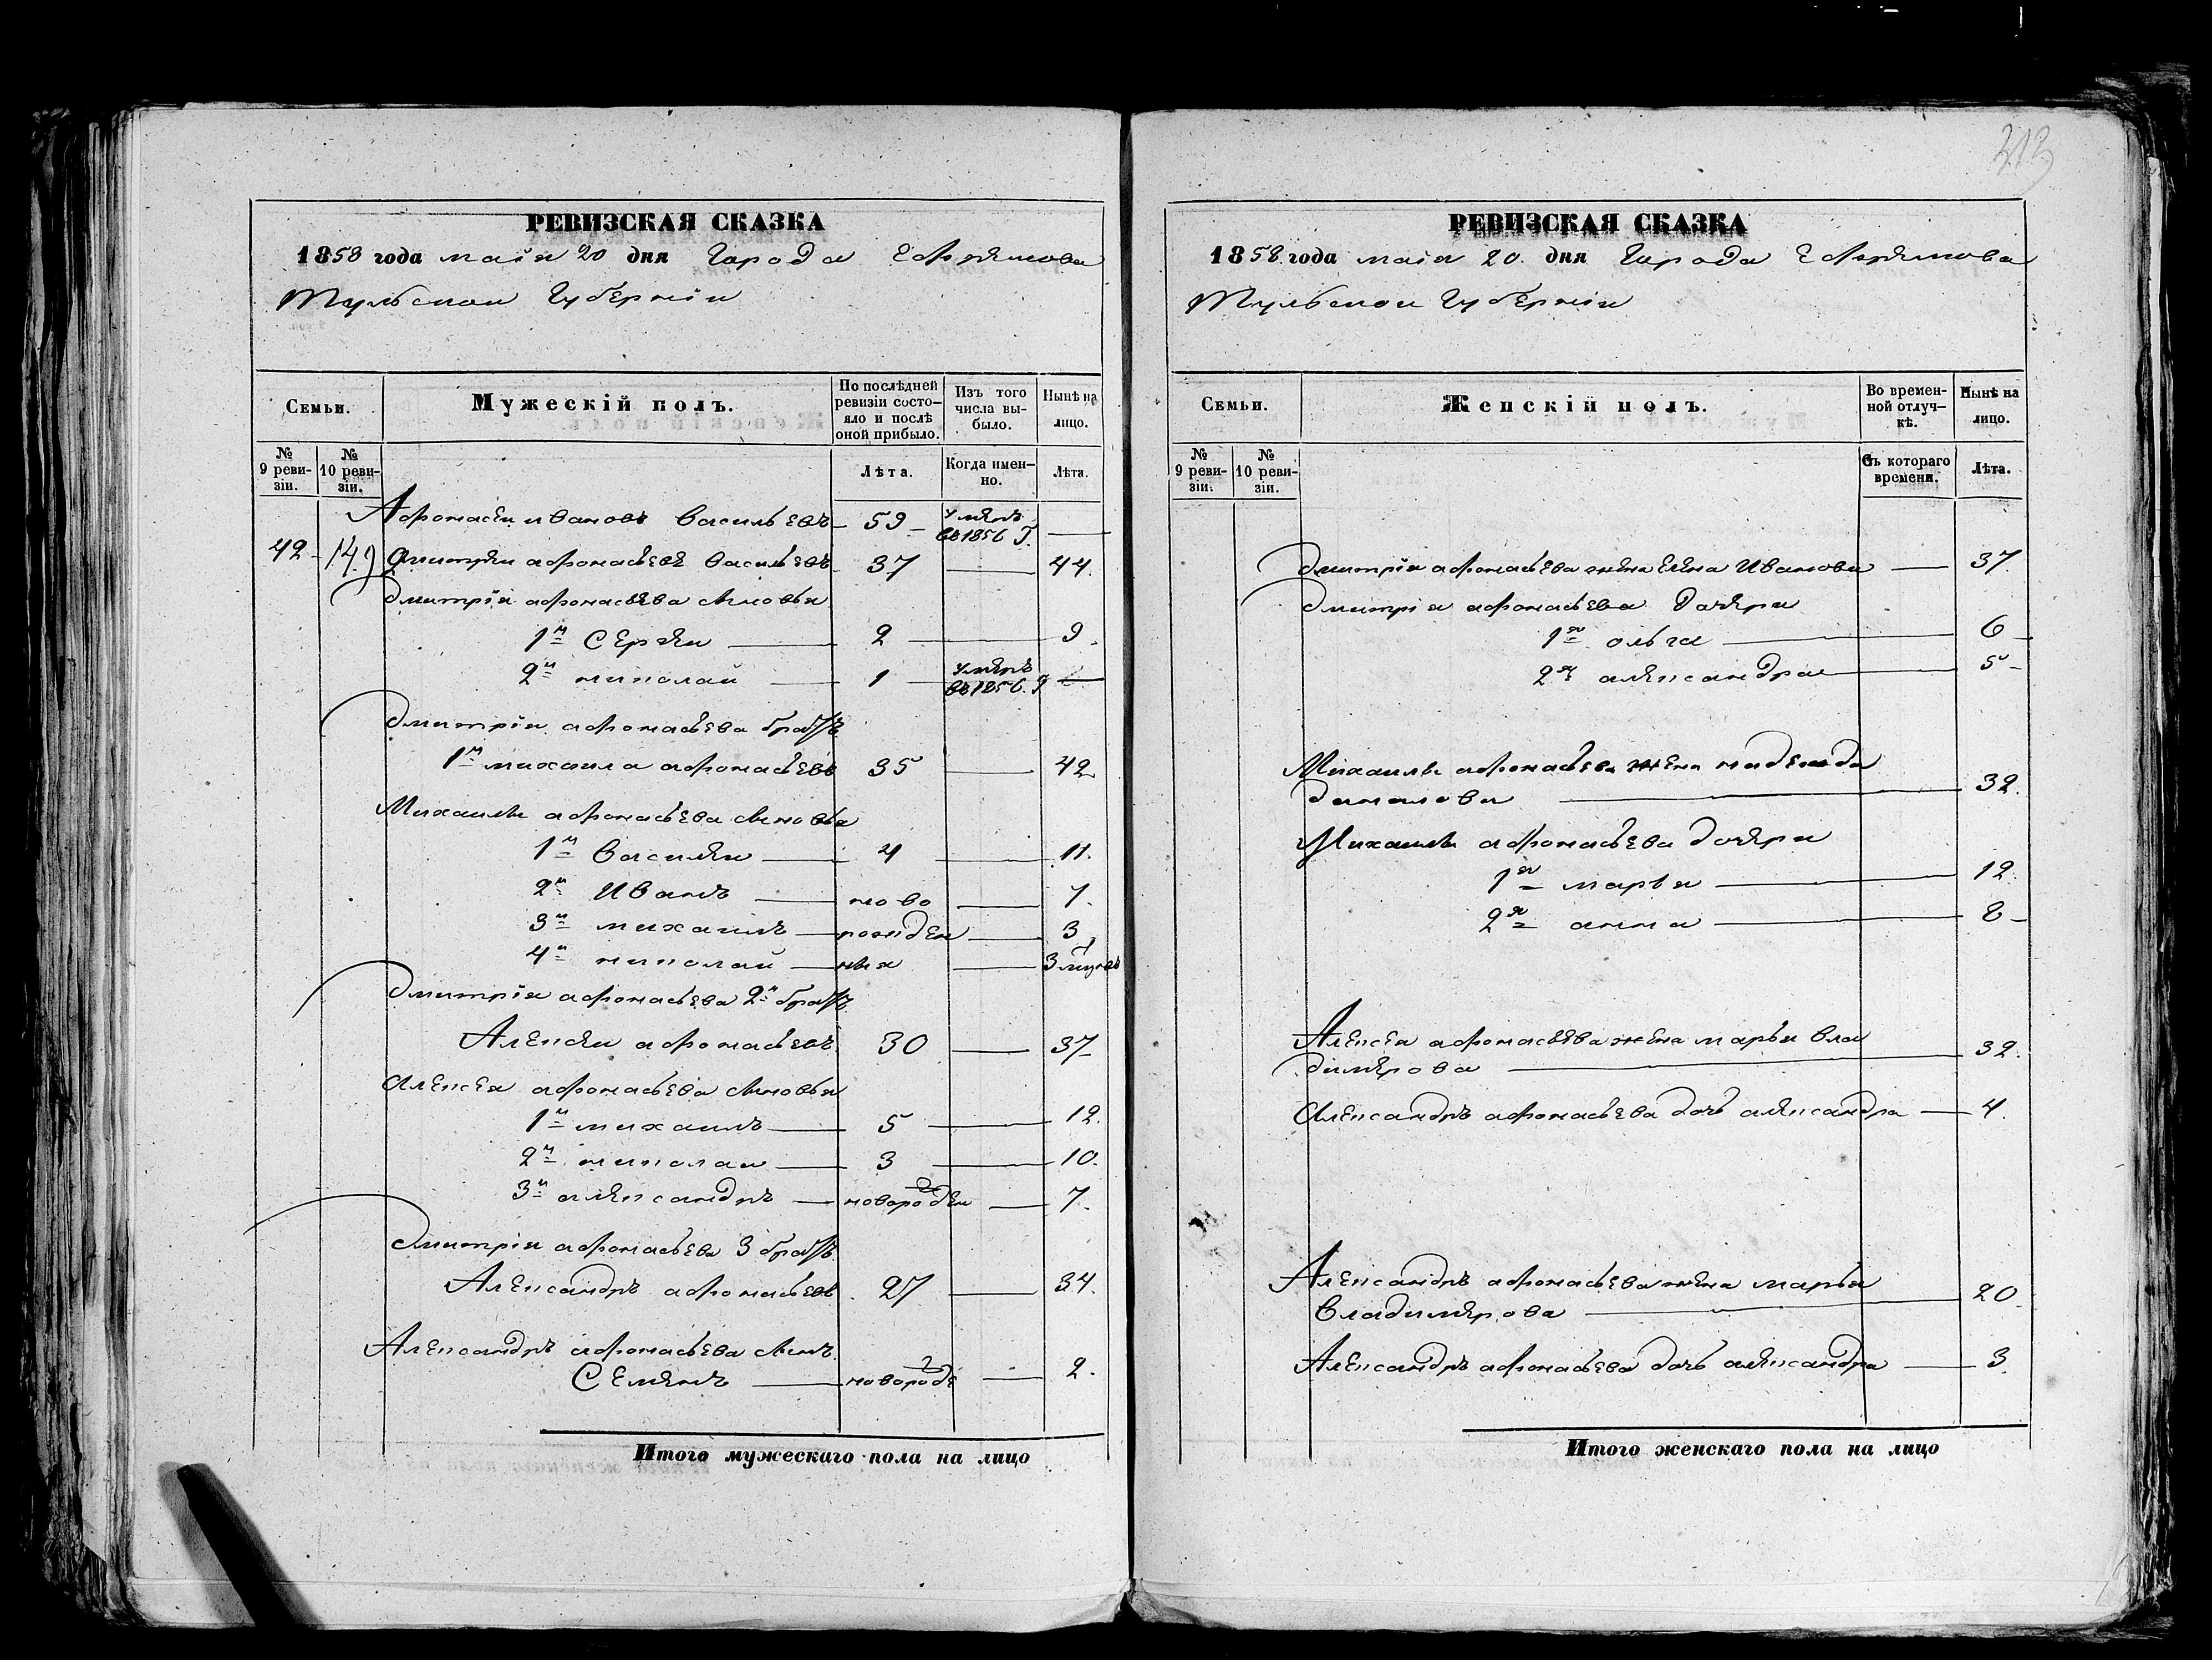 313
РЕВИЗСКАЯ СКАЗКА
1858 года маія 20 дня Города Ефремова
Тульской Губерніи
Семьи.
Мужескій полъ.
По послѣдней ревизіи состояло и послѣ оной прибыло.
Изъ того числа выбыло.
Нынѣ на лицо.
№ 9 ревизіи.
№ 10 ревизіи.
Лѣта.
Когда именно.
Лѣта.
Афонасѣй ивановъ Васильевъ 59 умѣръ въ 1856 Г.
42 149 Дмитрѣй афонасьевъ Васильевъ 37 44.
Дмитрія афонасьева сыновья
1й Сергѣй 2 9
2й николай 1 умѣръ въ 1856. г
Дмитрія афонасьева братья
1й михаила афонасьевъ 35 42
Михаилы афонасьева сыновья
1й Василѣй 4 11.
2й Иванъ ново 7.
3й михаилъ рожден 3
4й николай ныя 3 мѣся
Дмитрія афонасьева 2й братъ
Алексѣй афонасьевъ 30 37
Алексея афонасьева сыновья
1й михаилъ 5 12.
2й николаи 3 10.
3й алѣксандръ новорожден 7.
Дмитрія афонасьева 3 братъ
Александръ афонасьевъ 27 34.
Александръ афонасьева сынъ
Семѣнъ новорожде 2.
Итого мужескаго пола на лицо
РЕВИЗСКАЯ СКАЗКА
1858 года маія 20. дня Города Ефремова
Тульской Губерніи
Семьи.
Женскій полъ.
Во временной отлучкѣ.
Нынѣ на лицо.
№ 9 ревизіи.
№ 10 ревизіи.
Съ котораго времени.
Лѣта.
Дмитрія афонасьева жена Елена Иванова 37.
Дмитрія афонасьева дочѣри
1я ольга 6
2я алѣксандра 5
Михаилы афонасьева жена надежда
данилова 32.
Михаилы афонасьева дочѣри
1я марья 12.
2я анна 8
Алексея афонасьева жена марья вла
димѣрова 32.
Александръ афонасьева дочь алѣксандра 4.
Александръ афонасьева жена марья
Владимѣрова 20.
Александръ афонасьева дочь алѣксандра 3.
Итого женскаго пола на лицо